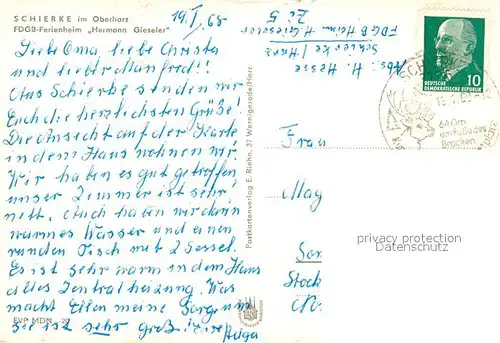 SCHIERKE im Oberharz
FDGB-Ferienheim „Hermann Gieseler"
19./I. 65
Liebe Oma, liebe Christa
und lieber Manfred!!
Aus Schierke senden wir
Euch die herzlichsten Grüße!
Die Ansicht auf der Karte
in dem Haus wohnen wir.
Wir haben es gut getroffen
unser Zimmer ist sehr
nett. Auch haben wir darin
warmes Wasser und einen
runden Tisch mit 2 Sessel.
Es ist sehr warm in dem Haus
alles Zentralheizung. Was
macht Ellen meine Sorge um
Sie ist sehr groß!
EVP MDN -.20
Postkartenverlag E. Riehn, 37 Wernigerode/Harz
Abs: H. Hesse
Schierke / Harz
FDGB Heim H. Gieseler
Zi 5
10
DEUTSCHE
DEMOKRATISCHE REPUBLIK
640m
am Fuße des
Brocken
Frau
May
privacy protection